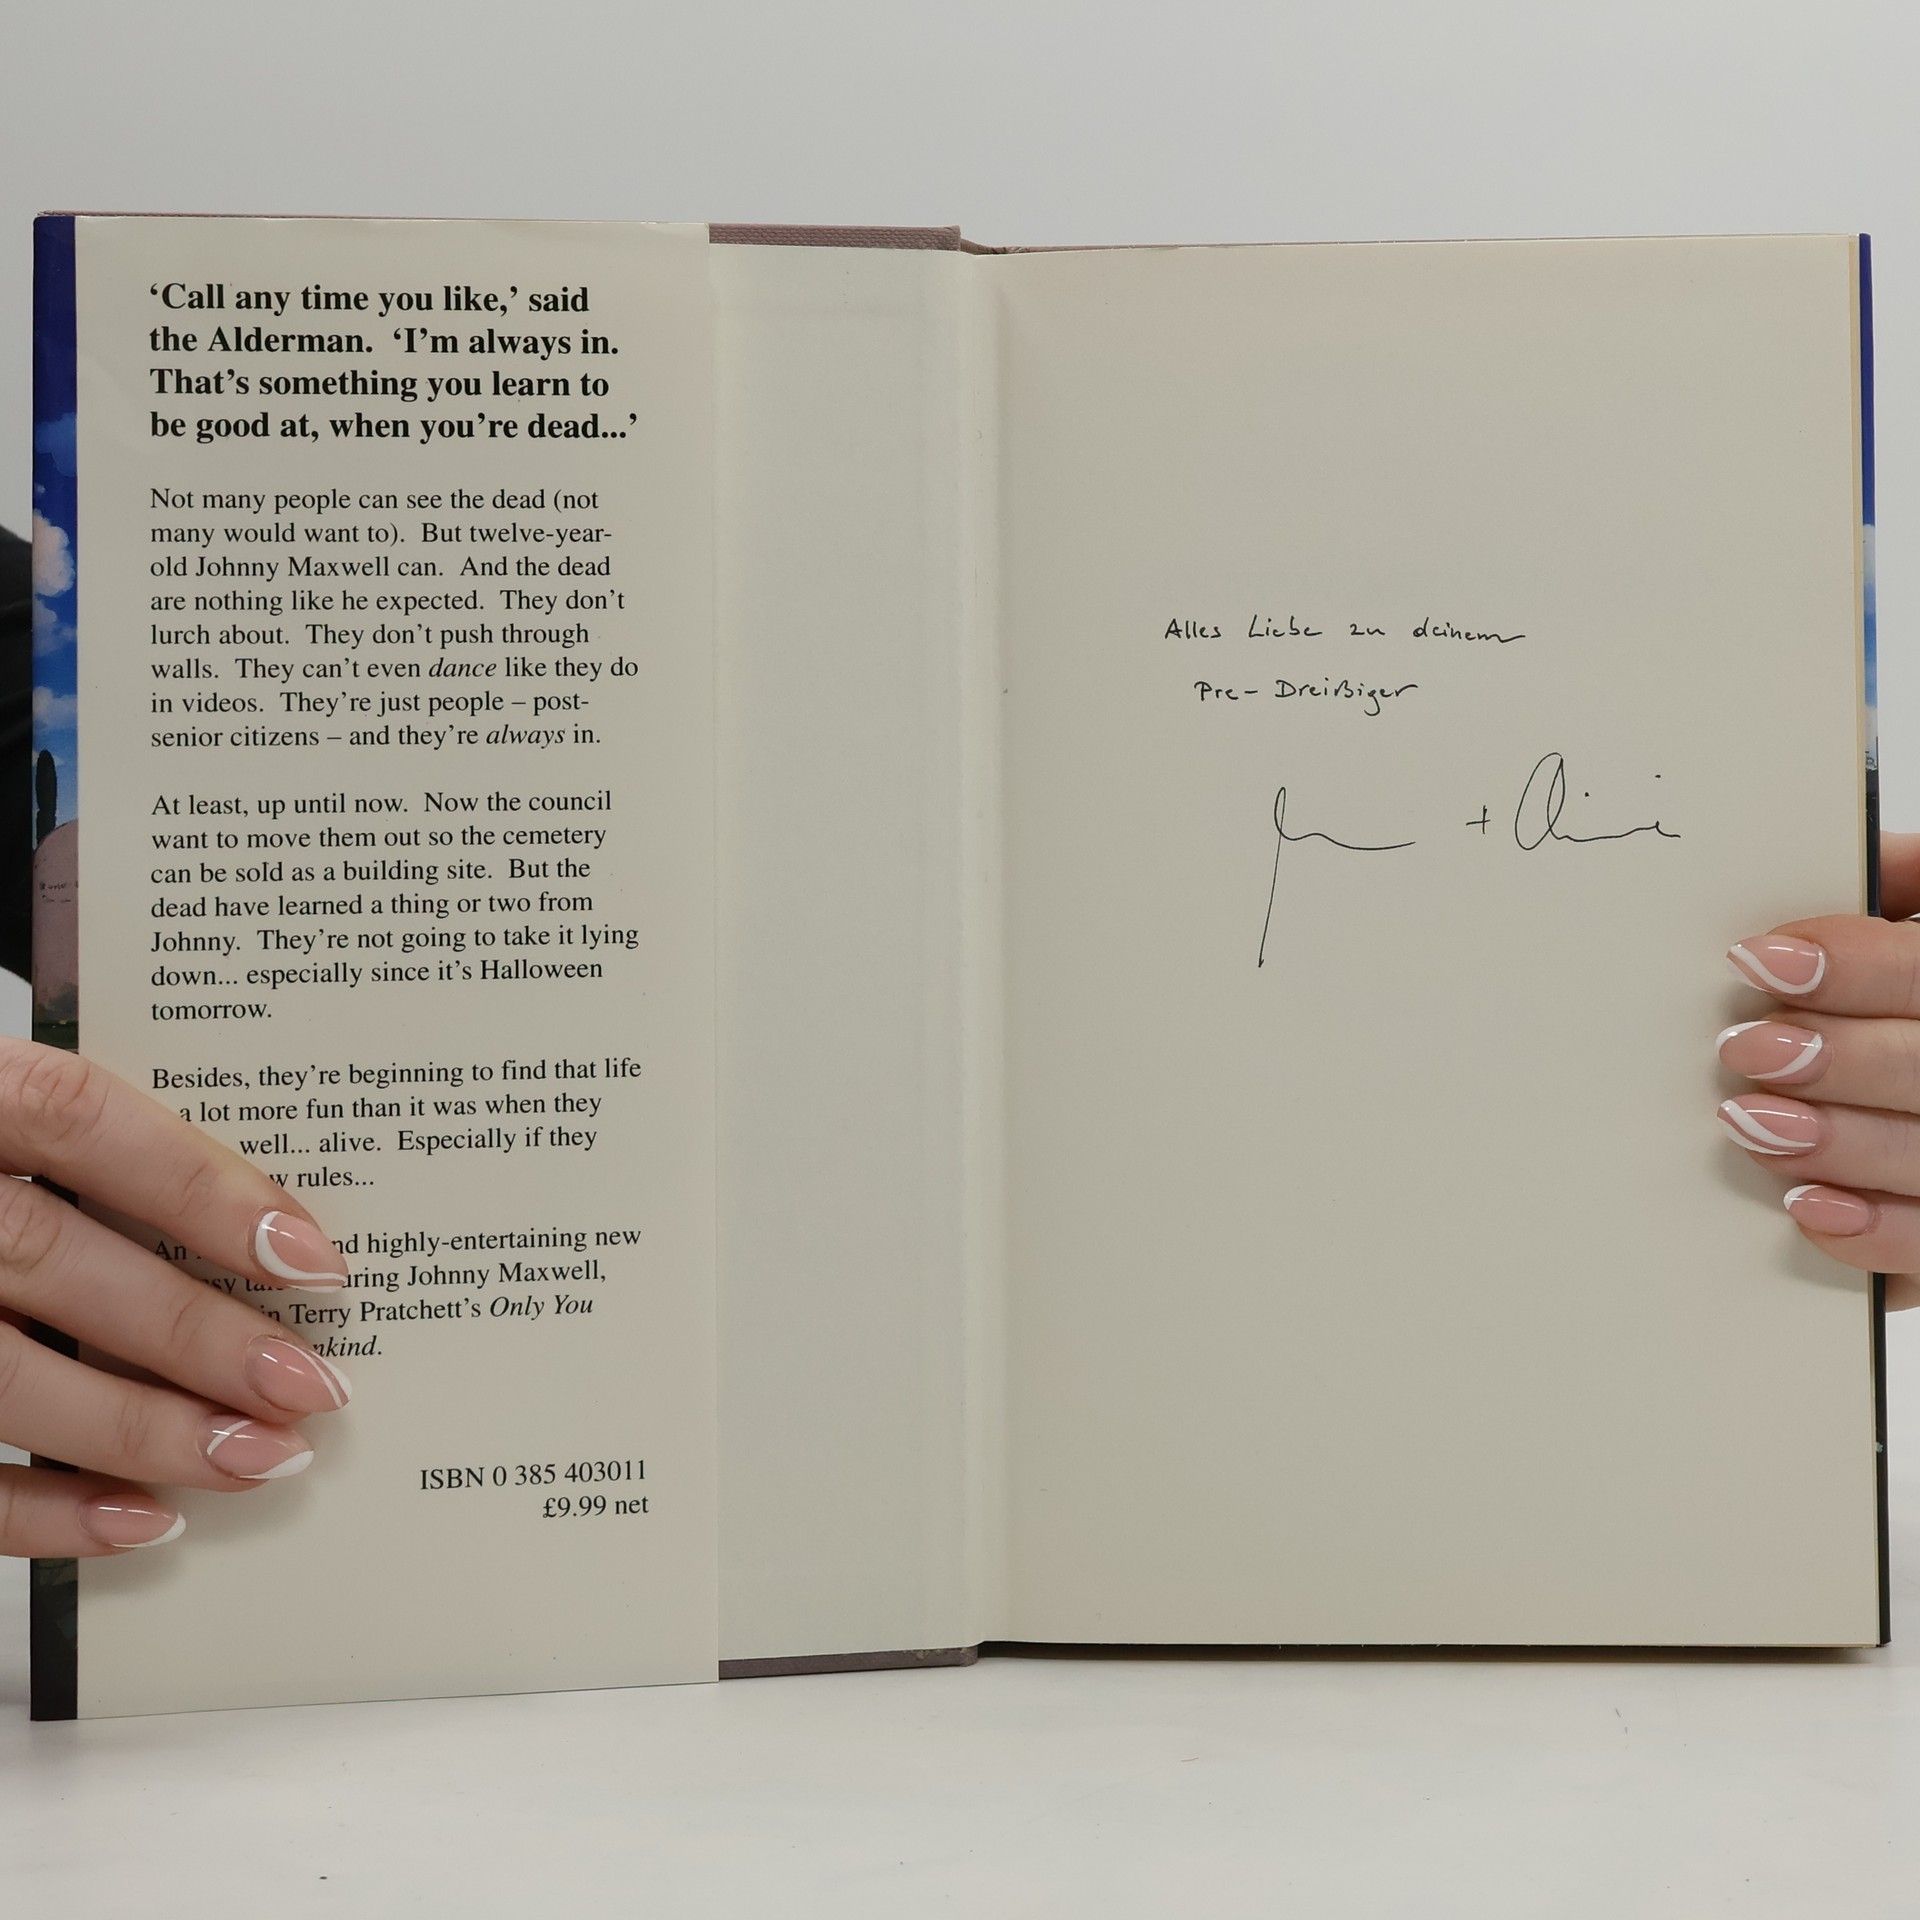 ‘Call any time you like,’ said
the Alderman. ‘I’m always in.
That’s something you learn to
be good at, when you’re dead...’
Not many people can see the dead (not
many would want to). But twelve-year-
old Johnny Maxwell can. And the dead
are nothing like he expected. They don’t
lurch about. They don’t push through
walls. They can’t even dance like they do
in videos. They’re just people – post-
senior citizens – and they’re always in.
At least, up until now. Now the council
want to move them out so the cemetery
can be sold as a building site. But the
dead have learned a thing or two from
Johnny. They’re not going to take it lying
down... especially since it’s Halloween
tomorrow.
Besides, they’re beginning to find that life
a lot more fun than it was when they
well... alive. Especially if they
rules...
An highly-entertaining new
Johnny Maxwell,
Terry Pratchett’s Only You
ISBN 0 385 403011
£9.99 net
Alles Liebe zu deinem
Pre-Dreißiger
+